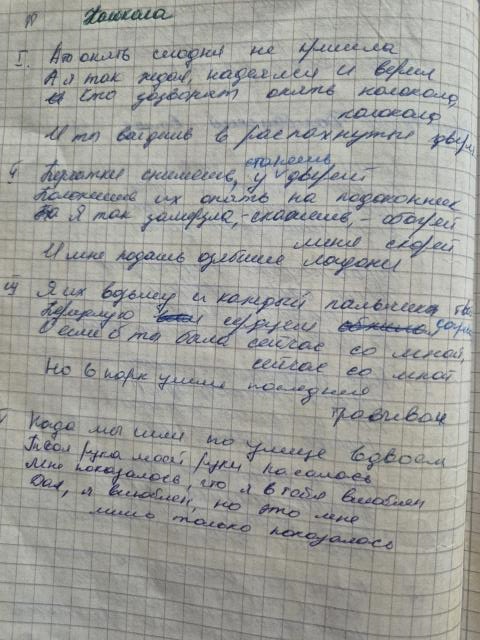 I. Ах опять сегодня не пришла
А я так ждал, надеялся и верил
Что зазвонят опять колокола
колокола
И ты войдешь в распахнутые двери
II Перчатки снимешь, у старешь дверей
Положишь их опять на подоконник
Я так замерзла, - скажешь, - обогрей
меня скорей
И мне подашь озябшие ладони
III Я их возьму и каждый пальчик
Перецелую сердцем
Если б ты была сейчас со мной,
сейчас со мной
Но в парк ушел последний
трамвай
Когда мы шли по улице вдвоем
Твоя рука моей руки касалась
Мне показалось, что я в тебя влюблен
Да, я влюблен, но это мне
лишь только показалось